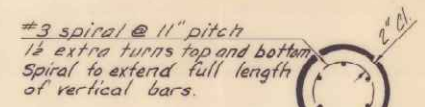 #3 spiral @ 11" pitch
1½ extra turns top and bottom
Spiral to extend full length
of vertical bars.
2" Cl.